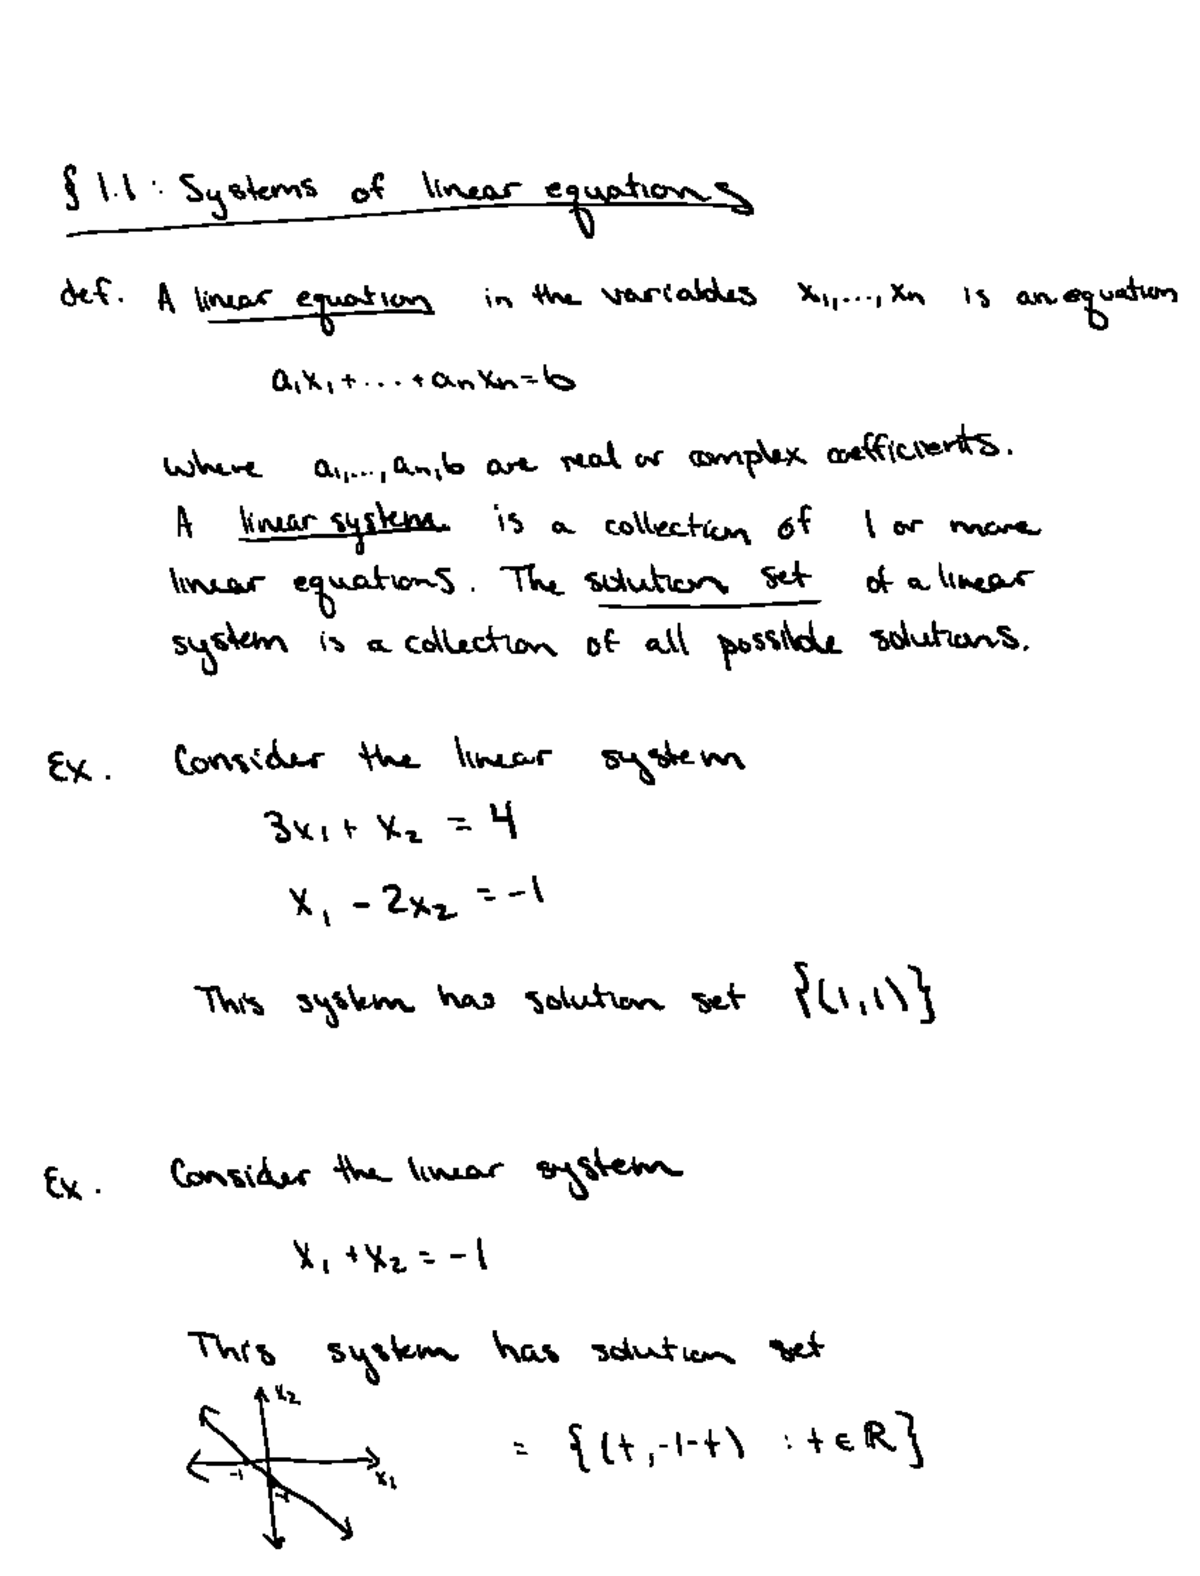 § 1.1: Systems of linear equations
def. A linear equation in the variables x₁,..., xₙ is an equation
a₁x₁+...+aₙxₙ=b
where a₁,..., aₙ,b are real or complex coefficients.
A linear system is a collection of 1 or more
linear equations. The solution set of a linear
system is a collection of all possible solutions.
Ex. Consider the linear system
3x₁+ x₂ = 4
x₁ - 2x₂ = -1
This system has solution set {(1,1)}
Ex. Consider the linear system
x₁ +x₂ = -1
This system has solution set
x₂
= {(t,-1-t) : t ∈ ℝ}
-1
x₁
-1